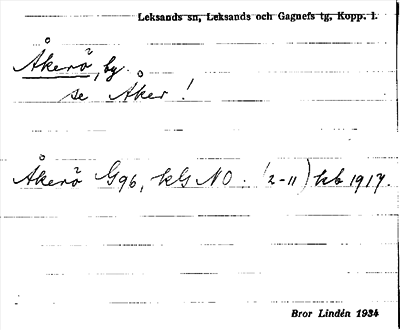 Leksands sn, Leksands och Gagnefs tg, Kopp. l.
Åkerö, by.
se Åker!
Åkerö G96, kG NO. (2-11) kb 1917.
Bror Lindén 1934